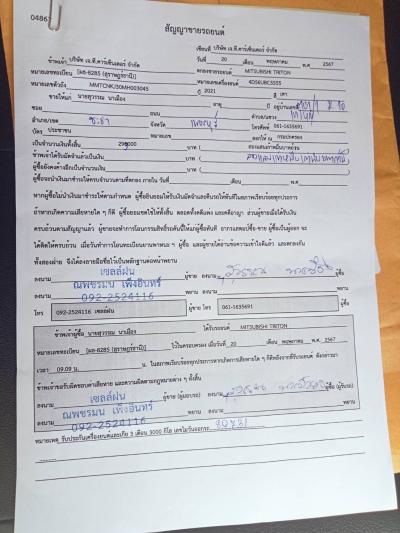 0486
สัญญาขายรถยนต์
เขียนที่ บริษัท เจ.ที.คาร์เซ็นเตอร์ จำกัด
ข้าพเจ้า บริษัท เจ.ที.คาร์เซ็นเตอร์ จำกัด วันที่ 20 เดือน พฤษภาคม พ.ศ. 2567
หมายเลขทะเบียน [ผล-8285 (สุราษฎร์ธานี)] ตกลงขายรถยนต์ MITSUBISHI TRITON
หมายเลขตัวถัง MMTCNK/30MH003045 หมายเลขเครื่องยนต์ 4D56UBC5555
ขายให้แก่ นายสุวรรณ นาเมือง ปี 2021 สี เทา
ซอย ถนน อายุ ปี อยู่บ้านเลขที่
อำเภอ/เขต ชะอำ จังหวัด เพชรบุรี ตำบล/แขวง
บัตร ประชาชน หมายเลข โทรศัพท์ 061-1635691
ออกให้ ณ กรมปกครอง
เป็นจำนวนเงินทั้งสิ้น บาท ( สองแสนเก้าหมื่นบาทถ้วน
ข้าพเจ้าได้รับมัดจำแล้วเป็นเงิน บาท (
ผู้ซื้อยังคงค้างอีกเป็นจำนวนเงิน บาท (
ผู้ซื้อจะนำเงินมาชำระให้ครบจำนวนตามที่ตกลง ภายใน วันที่ เดือน พ.ศ.
หากผู้ซื้อไม่นำเงินมาชำระให้ตามกำหนด ผู้ซื้อยินยอมให้ริบเงินมัดจำและคืนรถให้ทันทีในสภาพเรียบร้อยทุกประการ
ถ้าหากเกิดความเสียหายใด ๆ ก็ดี ผู้ซื้อยอมชดใช้ให้ทั้งสิ้น ตลอดทั้งคดีแพ่ง และคดีอาญา ส่วนผู้ขายเมื่อได้รับเงิน
ครบถ้วนตามสัญญาแล้ว ผู้ขายจะทำการโอนกรรมสิทธิ์รถคันนี้ให้แก่ผู้ซื้อทันที
ได้คิดให้ครบถ้วน เมื่อวันทำการโอนทะเบียนยานพาหนะ ๆ ผู้ซื้อ และผู้ขายได้อ่านข้อความเข้าใจดีแล้ว และตกลงกัน
ทั้งสองฝ่าย จึงได้ลงลายมือชื่อไว้เป็นหลักฐานต่อหน้าพยาน
ลงนาม เซลล์ฝน ผู้ขาย ลงนาม ผู้ซื้อ
ลงนาม ณพชรมน เพ็งอินทร์ พยาน ลงนาม พยาน
092-2524116
โทร 092-2524116 เซลล์ฝน ผู้ขาย โทร 061-1635691 ผู้ซื้อ
ข้าพเจ้าผู้ซื้อ นายสุวรรณ นาเมือง ได้รับรถยนต์ MITSUBISHI TRITON
หมายเลขทะเบียน [ผล-8285 (สุราษฎร์ธานี)] ไว้ในครอบครอง เมื่อวันที่ 20 เดือน พฤษภาคม พ.ศ. 2567
เวลา 09.09 น. น. ในสภาพเรียบร้อยทุกประการหากเกิดการเสียหายใด ๆ ก็ดีหลังจากที่รับรถยนต์ ดังกล่าวมา
ข้าพเจ้าขอรับผิดชอบค่าเสียหาย และความผิดตามกฎหมายต่าง ๆ ทั้งสิ้น
ลงนาม เซลล์ฝน ผู้ขาย (ผู้มอบรถ) ลงนาม ผู้ซื้อ (ผู้รับรถ)
ลงนาม ณพชรมน เพ็งอินทร์ พยาน ลงนาม พยาน
092-2524116
หมายเหตุ รับประกันเครื่องยนต์และเกียร์ 3 เดือน 3000 กิโล เลขไมล์วันออกรถ